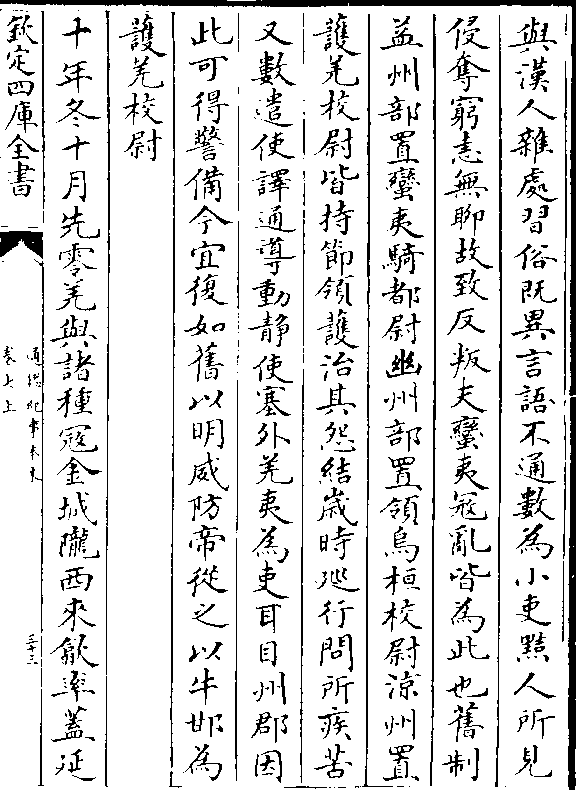 與漢人雜處習俗旣異言語不通數為小吏黠人所見
侵奪窮恚無聊故致反叛夫蠻夷冦亂皆為此也舊制
益州部置蠻夷騎都尉幽州部置領烏桓校尉涼州置
護羌校尉皆持節領護治其怨結歲時廵行問所疾苦
又數遣使譯通導動靜使塞外羌夷為吏耳目州郡因
此可得警備今宜復如舊以明威防帝從之以牛邯為
護羌校尉
十年冬十月先零羌與諸種冦金城隴西來歙率蓋延
欽定四庫全書
通鑑紀事本末
卷七上
三十三